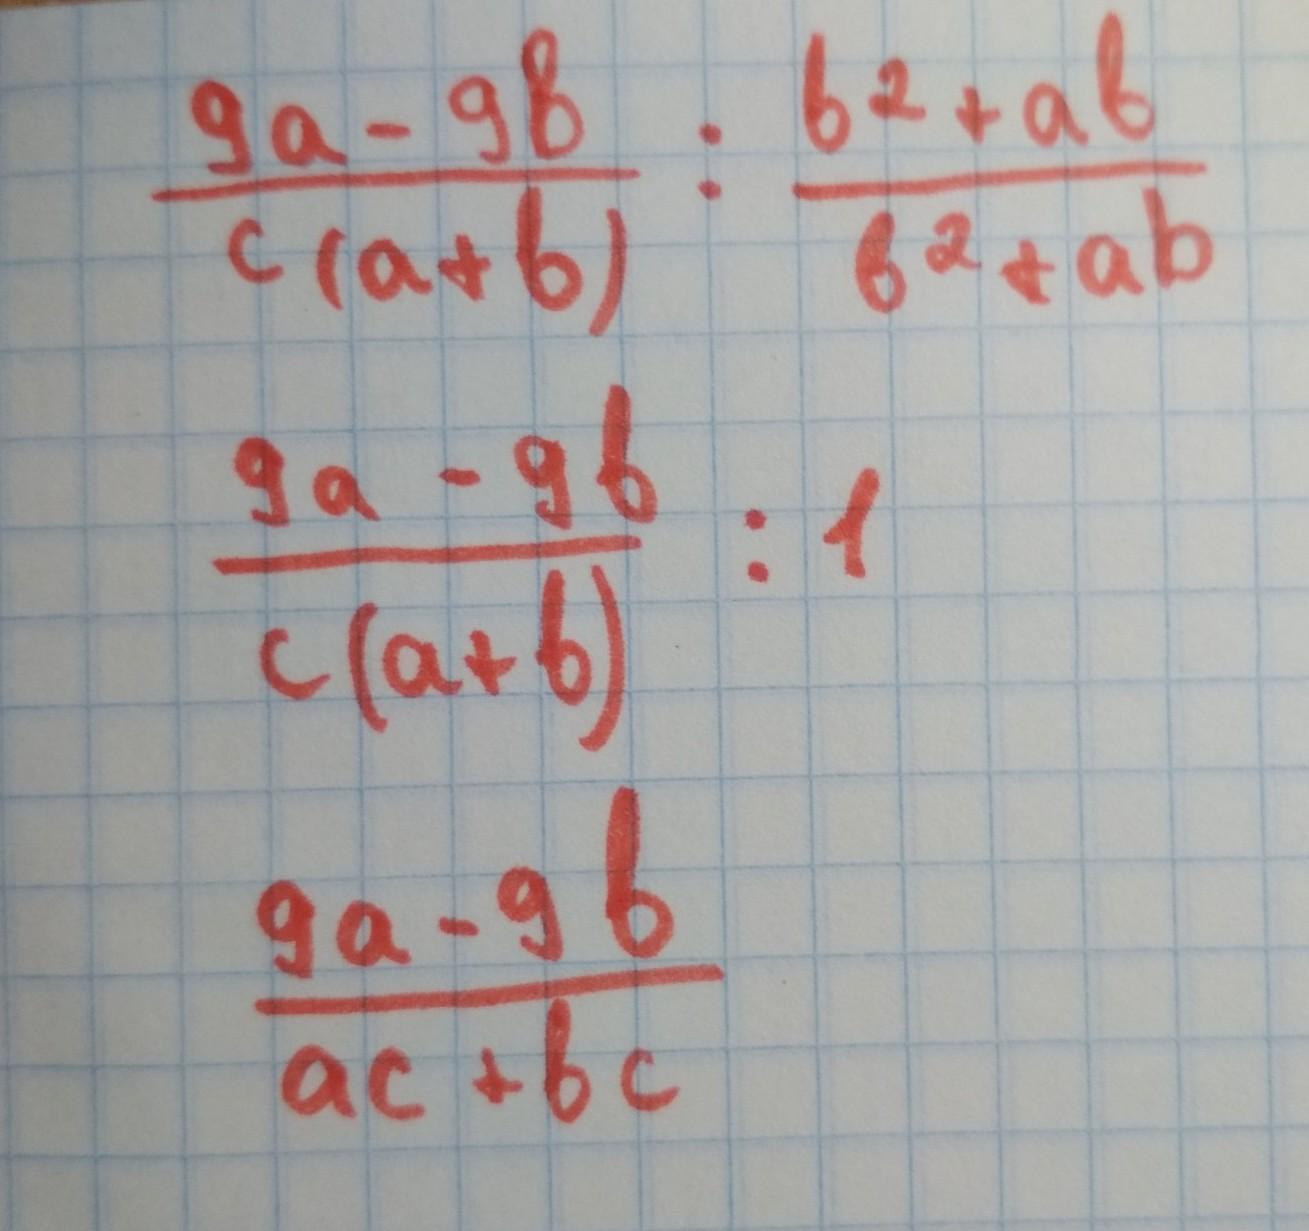 9a - 9b : b² + ab
c(a+b) b² + ab
9a - 9b : 1
c(a+b)
9a - 9b
ac + bc